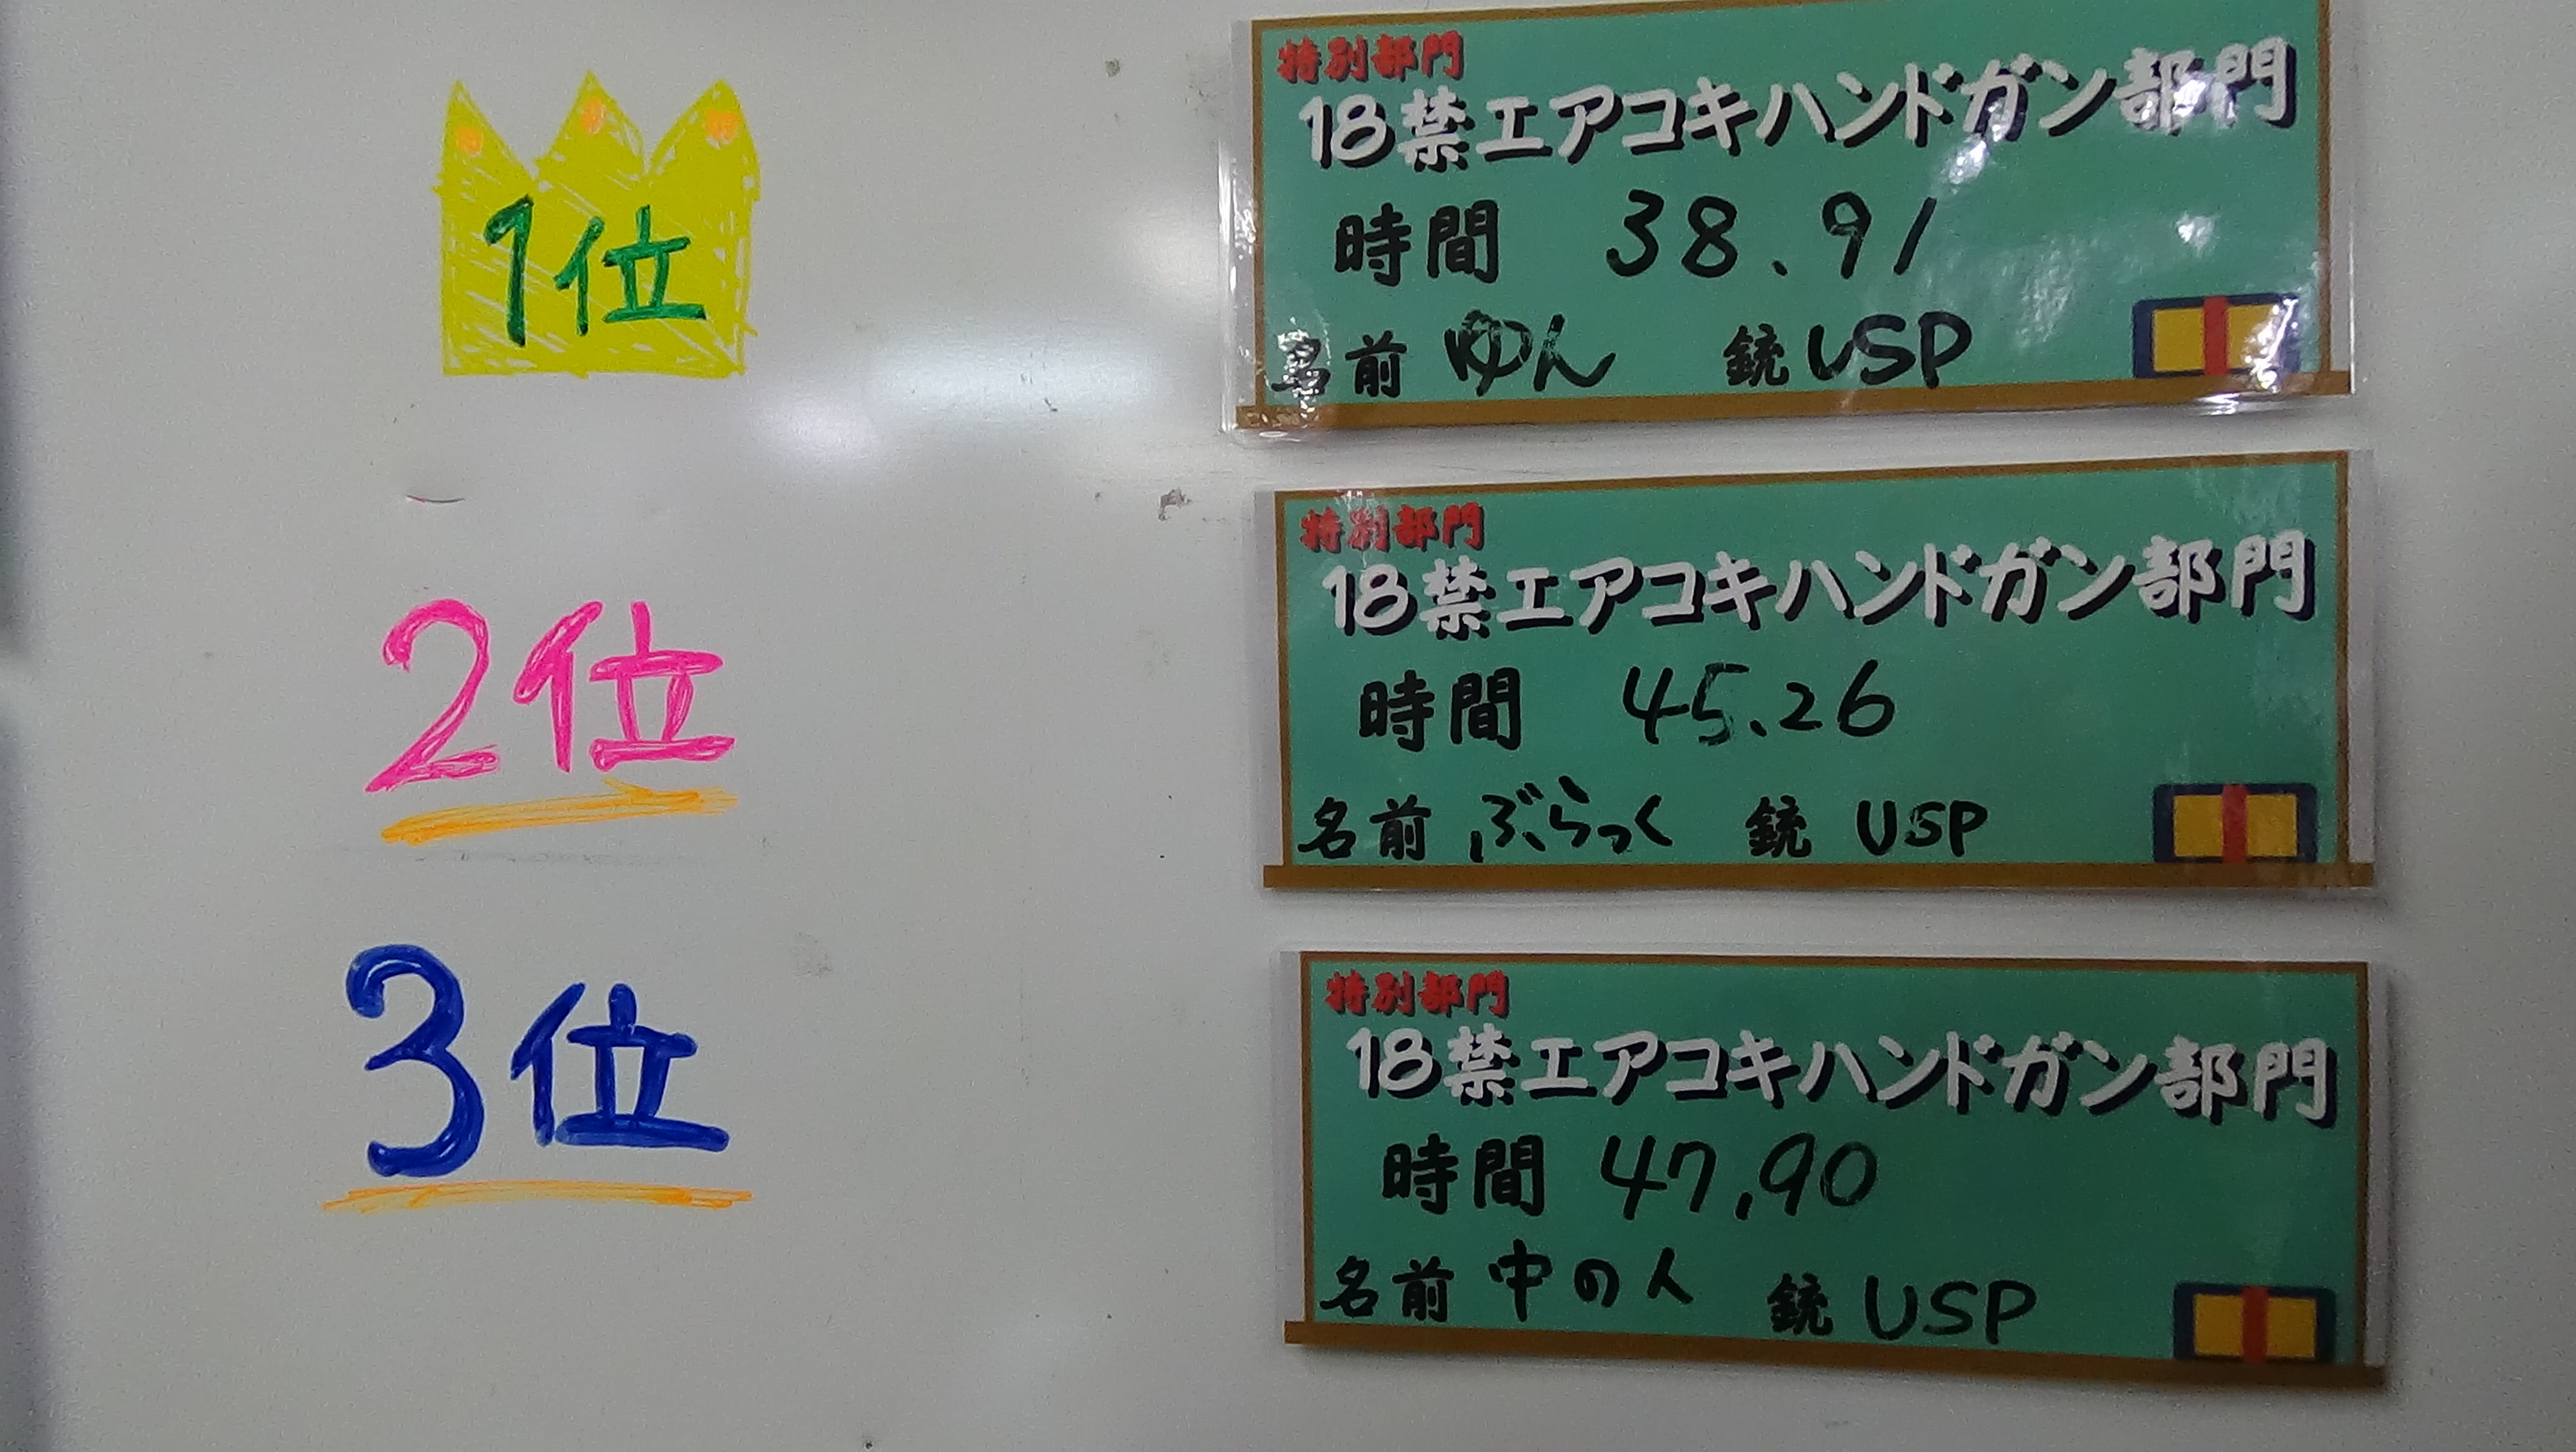 1位
特別部門
18禁エアコキハンドガン部門
時間 38.91
名前 ゆん 銃 USP
2位
特別部門
18禁エアコキハンドガン部門
時間 45.26
名前 ぶらっく 銃 USP
3位
特別部門
18禁エアコキハンドガン部門
時間 47.90
名前 中の人 銃 USP